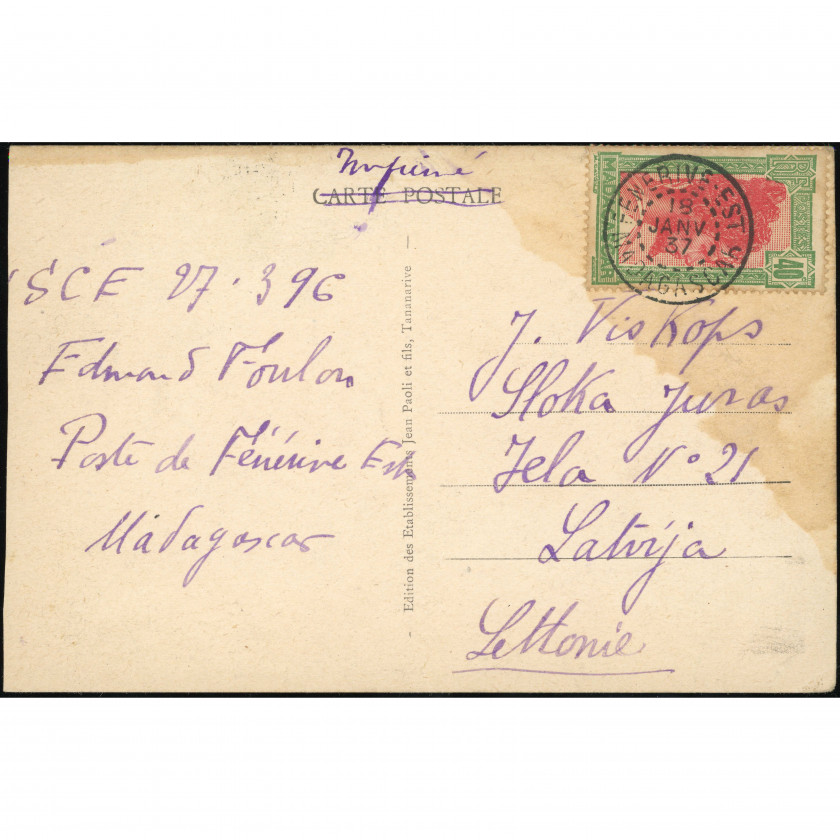 Imprimé
CARTE POSTALE
SCE 27.396
Edmond Foulon
Poste de Fénérive Est
Madagascar
Edition des Etablissements Jean Paoli et fils, Tananarive
FENERIVE-EST
18
JANV
37
MADAGASCAR
RF
40
J. Viskops
Sloka Juras
Jela N° 21
Latvija
Lettonie